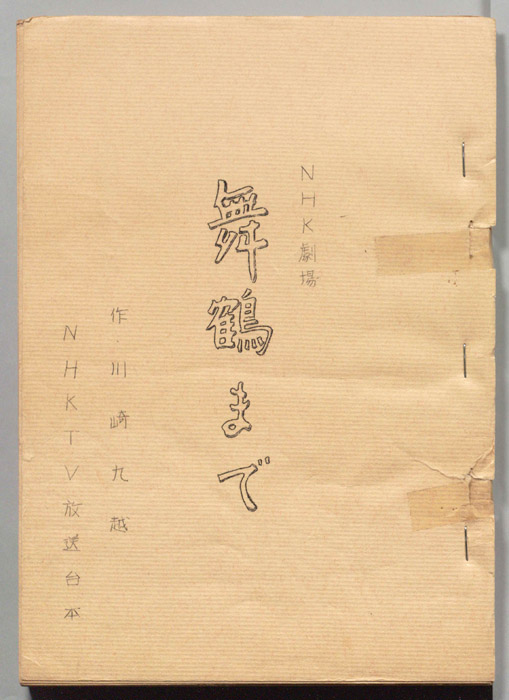 NHK劇場
舞鶴まで
作・川崎九越
NHKTV放送台本